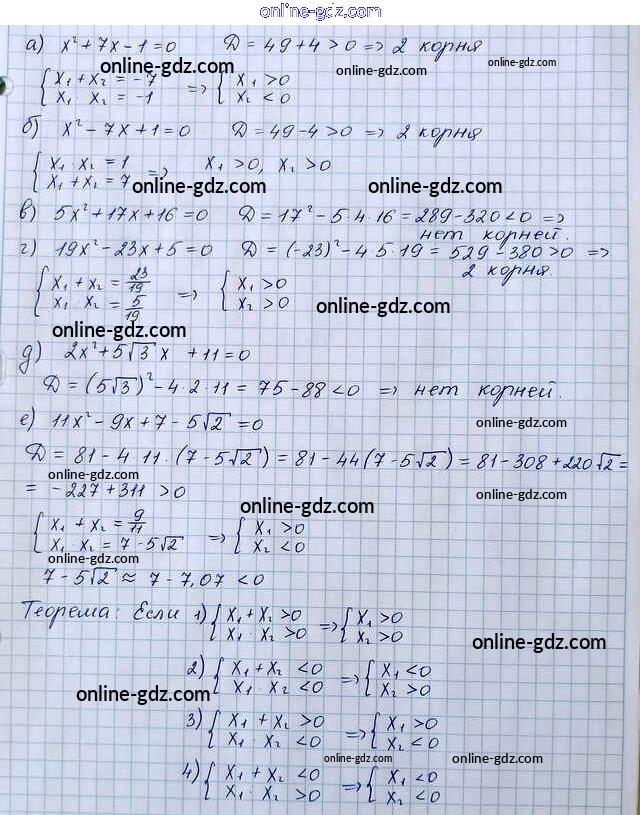 online-gdz.com
а) x² + 7x - 1 = 0   Д = 49 + 4 > 0 => 2 корня
online-gdz.com
online-gdz.com
{ x₁ + x₂ = -7
x₁ x₂ = -1 => { x₁ > 0
x₂ < 0
online-gdz.com
б) x² - 7x + 1 = 0   Д = 49 - 4 > 0 => 2 корня
{ x₁ · x₂ = 1
x₁ + x₂ = 7 => x₁ > 0, x₂ > 0
online-gdz.com
online-gdz.com
в) 5x² + 17x + 16 = 0   Д = 17² - 5·4·16 = 289 - 320 < 0 =>
нет корней.
г) 19x² - 23x + 5 = 0   Д = (-23)² - 4·5·19 = 529 - 380 > 0 =>
2 корня.
{ x₁ + x₂ = 23/19
x₁ · x₂ = 5/19 => { x₁ > 0
x₂ > 0
online-gdz.com
online-gdz.com
д) 2x² + 5√3 x + 11 = 0
Д = (5√3)² - 4·2·11 = 75 - 88 < 0 => нет корней.
е) 11x² - 9x + 7 - 5√2 = 0
online-gdz.com
Д = 81 - 4·11·(7 - 5√2) = 81 - 44(7 - 5√2) = 81 - 308 + 220√2 =
online-gdz.com
= -227 + 311 > 0
online-gdz.com
online-gdz.com
{ x₁ + x₂ = 9/11
x₁ · x₂ = 7 - 5√2 => { x₁ > 0
x₂ < 0
online-gdz.com
online-gdz.com
7 - 5√2 ≈ 7 - 7,07 < 0
Теорема: Если 1) { x₁ + x₂ > 0
x₁ · x₂ > 0 => { x₁ > 0
x₂ > 0
online-gdz.com
2) { x₁ + x₂ < 0
x₁ · x₂ < 0 => { x₁ < 0
x₂ > 0
online-gdz.com
3) { x₁ + x₂ > 0
x₁ · x₂ < 0 => { x₁ > 0
x₂ < 0
online-gdz.com
online-gdz.com
4) { x₁ + x₂ < 0
x₁ · x₂ > 0 => { x₁ < 0
x₂ < 0
online-gdz.com
online-gdz.com